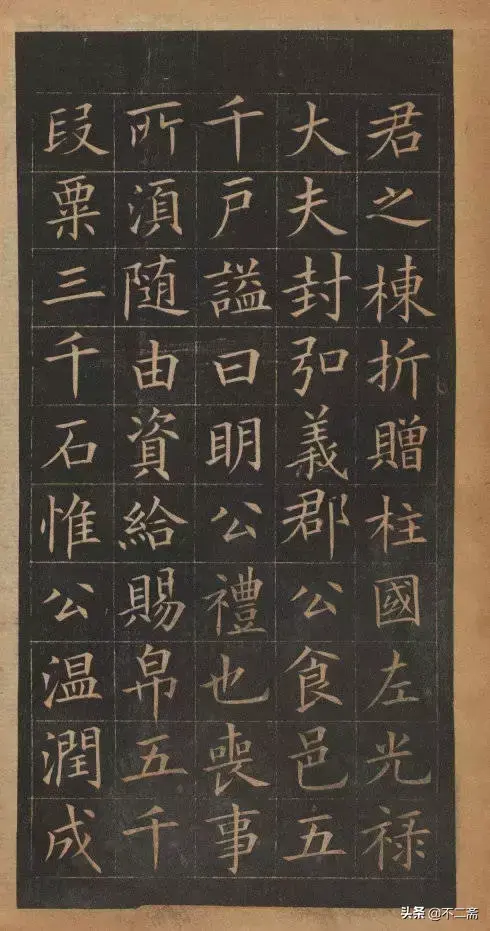 君之棟折贈柱國左光祿
大夫封弘義郡公食邑五
千戶謚曰明公禮也喪事
所湏隨由資給賜帛五千
段粟三千石惟公温潤成
头条 @不二斋